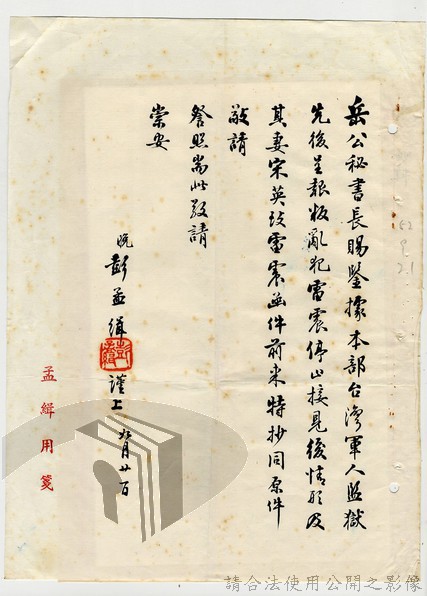 岳公秘書長賜鑒據本部台灣軍人監獄
先後呈報叛亂犯雷震停止接見後情形及
其妻宋英致雷震函件前來特抄同原件
敬請
詧照耑此敬請
崇安
晚彭孟緝謹上 九月廿一日
孟緝用箋
請合法使用公開之影像